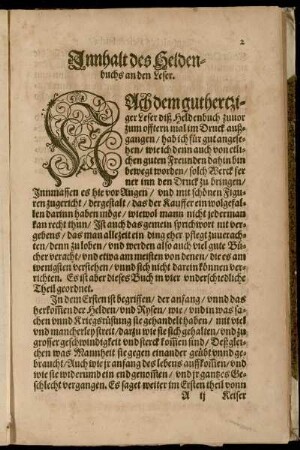 2
Innhalt des Helden-
buchs an den Leser.
NAch dem guthertzi-
ger Leser diß Heldenbuch zuuor
zum offtern mal im Druck auß-
gangen / hab ich für gut angese-
hen / wie ich denn auch von etli-
chen guten Freunden dahin bin
bewegt worden / solch Werck fer
ner inn den Druck zu bringen /
Innmassen es hie vor Augen / vnd mit schönen Figu-
ren zugericht / dergestalt / das der Kauffer ein wolgefal-
len darinn haben möge / wiewol mann nicht jederman
kan recht thun / Ist auch das gemein sprichwort nit ver-
gebens / das man allezeit ein ding eher pflegt zuuerach-
ten / denn zu loben / vnd werden also auch viel gute Bü-
cher veracht / vnd etwa am meisten von denen / die es am
wenigsten verstehen / vnnd sich nicht darein können ver-
richten. Es ist aber dieses Buch in vier vnderschiedliche
Theil geordnet.
In dem Ersten ist begriffen / der anfang / vnnd das
herkommen der Helden / vnd Rysen / wie / vnd in was sa-
chen vnnd Kriegsrüstung sie gehandelt haben / mit viel
vnd mancherley streit / darzu wie sie sich gehalten / vnd zu
grosser geschwindigkeit vnd sterck kommen sind / Deßglei-
chen was Mannheit sie gegen einander geübt vnnd ge-
braucht / Auch wie jr anfang des lebens auffkommen / vnd
wie sie widerumb ein end genommen / vnd jr gantzes Ge-
schlecht vergangen. Es saget weiter im Ersten theil vonn
A ij Keiser